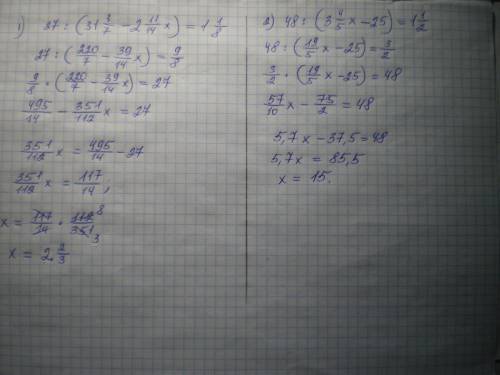 1) 27 : (31 3/7 − 2 11/14 x) = 1 1/8
27 : (220/7 − 39/14 x) = 9/8
9/8 * (220/7 − 39/14 x) = 27
495/14 − 351/112 x = 27
351/112 x = 495/14 − 27
351/112 x = 117/14 ,
x = 117/14 * 112/351 8 3
x = 2 2/3
2) 48 : (3 4/5 x − 25) = 1 1/2
48 : (19/5 x − 25) = 3/2
3/2 * (19/5 x − 25) = 48
57/10 x − 75/2 = 48
5,7x − 37,5 = 48
5,7x = 85,5
x = 15.